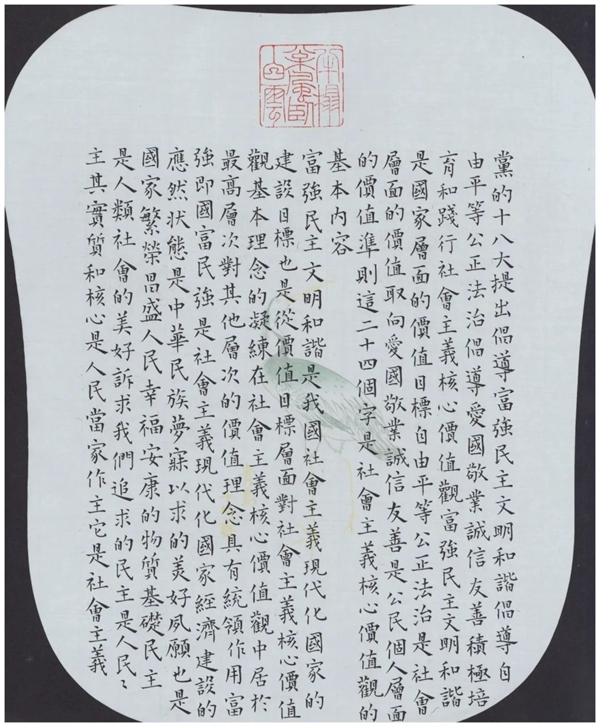 黨的十八大提出倡導富強民主文明和諧倡導自
由平等公正法治倡導愛國敬業誠信友善積極培
育和踐行社會主義核心價值觀富強民主文明和諧
是國家層面的價值目標自由平等公正法治是社會
層面的價值取向愛國敬業誠信友善是公民個人層面
的價值準則這二十四個字是社會主義核心價值觀的
基本內容
富強民主文明和諧是我國社會主義現代化國家的
建設目標也是從價值目標層面對社會主義核心價值
觀基本理念的凝練在社會主義核心價值觀中居於
最高層次對其他層次的價值理念具有統領作用富
強即國富民強是社會主義現代化國家經濟建設的
應然状態是中華民族夢寐以求的美好夙願也是
國家繁榮昌盛人民幸福安康的物質基礎民主
是人類社會的美好訴求我們追求的民主是人民〻
主其實質和核心是人民當家作主它是社會主義